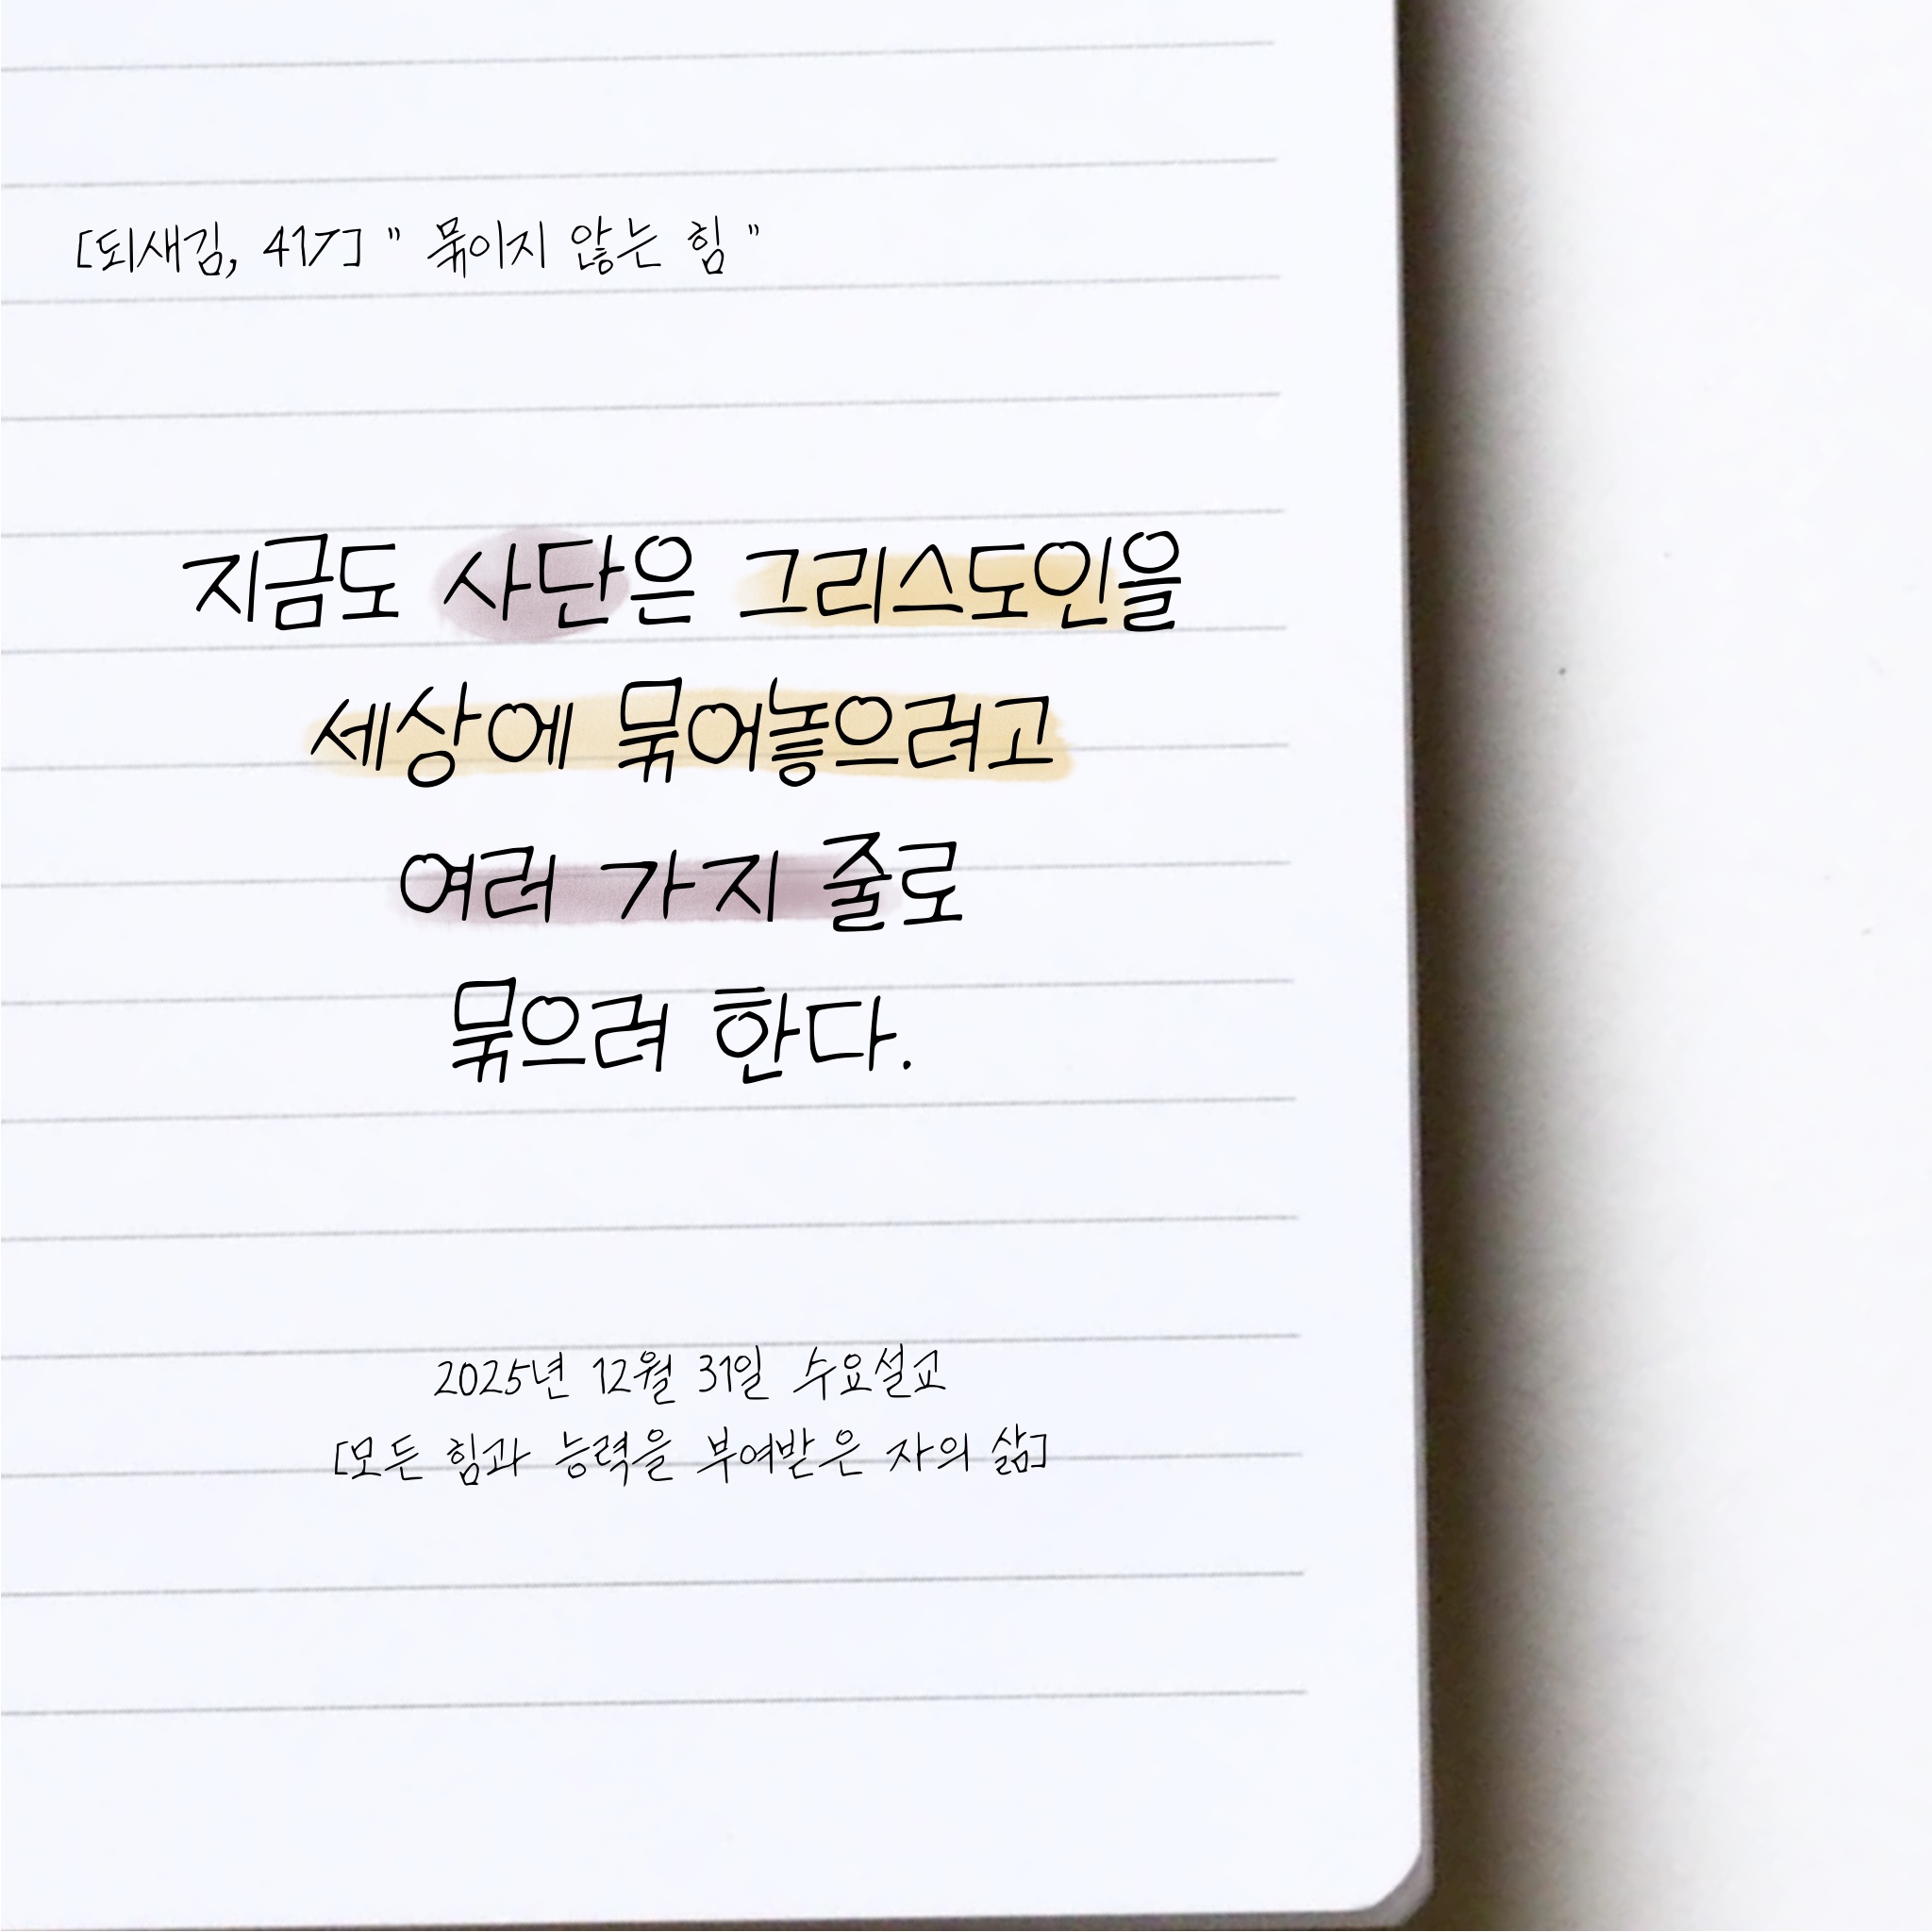 [되새김, 417] " 묶이지 않는 힘 "
지금도 사단은 그리스도인을
세상에 묶어놓으려고
여러 가지 줄로
묶으려 한다.
2025년 12월 31일 수요설교
[모든 힘과 능력을 부여받은 자의 삶]